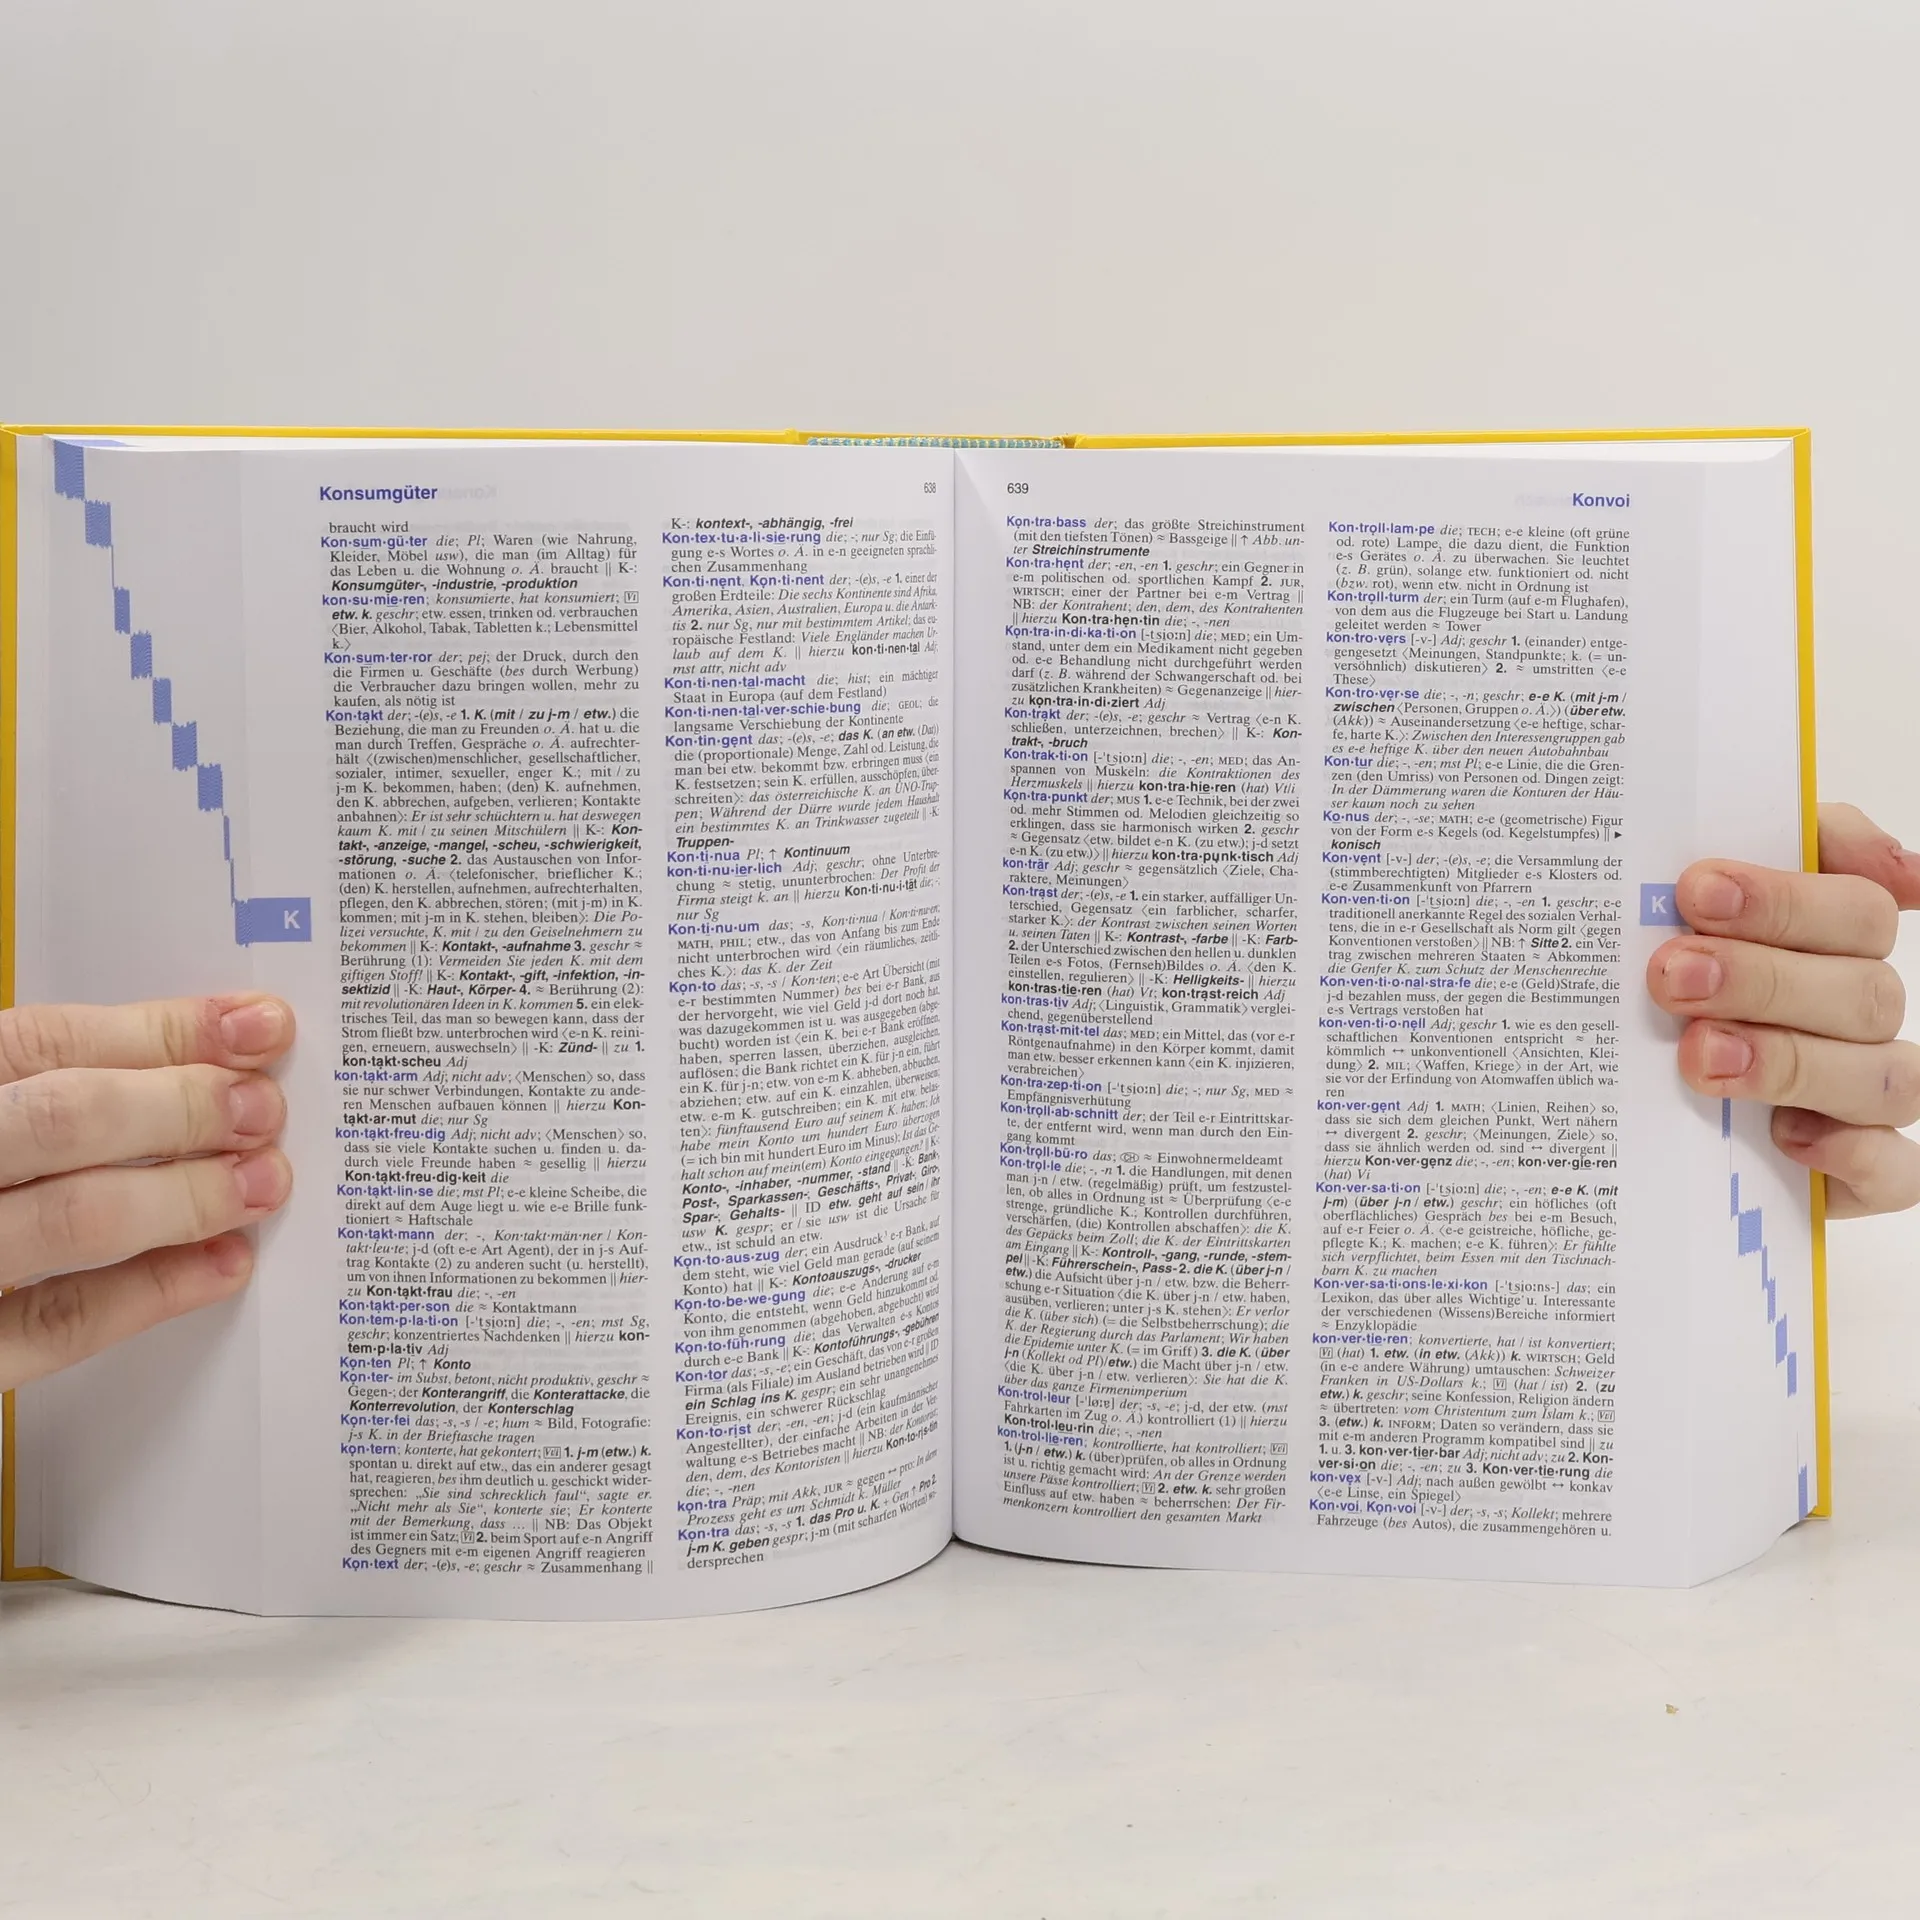 Konsumgüter
638
braucht wird
Kon·sum·gü·ter die; Pl; Waren (wie Nahrung,
Kleider, Möbel usw), die man (im Alltag) für
das Leben u. die Wohnung o. Ä. braucht || K-:
Konsumgüter-, -industrie, -produktion
kon·su·mie·ren; konsumierte, hat konsumiert; Vt
etw. k. geschr; etw. essen, trinken od. verbrauchen
⟨Bier, Alkohol, Tabak, Tabletten k.; Lebensmittel
k.⟩
Kon·sum·ter·ror der; pej; der Druck, durch den
die Firmen u. Geschäfte (bes durch Werbung)
die Verbraucher dazu bringen wollen, mehr zu
kaufen, als nötig ist
Kon·takt der; -(e)s, -e 1. K. (mit / zu j-m / etw.) die
Beziehung, die man zu Freunden o. Ä. hat u. die
man durch Treffen, Gespräche o. Ä. aufrechter-
hält ⟨(zwischen)menschlicher, gesellschaftlicher,
sozialer, intimer, sexueller, enger K.; mit / zu
j-m K. bekommen, haben; (den) K. aufnehmen,
den K. abbrechen, aufgeben, verlieren; Kontakte
anbahnen⟩: Er ist sehr schüchtern u. hat deswegen
kaum K. mit / zu seinen Mitschülern || K-: Kon-
takt-, -anzeige, -mangel, -scheu, -schwierigkeit,
-störung, -suche 2. das Austauschen von Infor-
mationen o. Ä. ⟨telefonischer, brieflicher K.;
(den) K. herstellen, aufnehmen, aufrechterhalten,
pflegen, den K. abbrechen, stören; (mit j-m) in K.
kommen; mit j-m in K. stehen, bleiben⟩: Die Po-
lizei versuchte, K. mit / zu den Geiselnehmern zu
bekommen || K-: Kontakt-, -aufnahme 3. geschr ≈
Berührung (1): Vermeiden Sie jeden K. mit dem
giftigen Stoff! || K-: Kontakt-, -gift, -infektion, -in-
sektizid || -K: Haut-, Körper- 4. ≈ Berührung (2):
mit revolutionären Ideen in K. kommen 5. ein elek-
trisches Teil, das man so bewegen kann, dass der
Strom fließt bzw. unterbrochen wird ⟨e-n K. reini-
gen, erneuern, auswechseln⟩ || -K: Zünd- || zu 1.
kon·takt·scheu Adj
kon·takt·arm Adj, nicht adv; ⟨Menschen⟩ so, dass
sie nur schwer Verbindungen, Kontakte zu ande-
ren Menschen aufbauen können || hierzu Kon-
takt·ar·mut die; nur Sg
kon·takt·freu·dig Adj; nicht adv; ⟨Menschen⟩ so,
dass sie viele Kontakte suchen u. finden u. da-
durch viele Freunde haben ≈ gesellig || hierzu
Kon·takt·freu·dig·keit die
Kon·takt·lin·se die; mst Pl; e-e kleine Scheibe, die
direkt auf dem Auge liegt u. wie e-e Brille funk-
tioniert ≈ Haftschale
Kon·takt·mann der; -, Kon·takt·män·ner / Kon-
takt·leu·te; j-d (oft e-e Art Agent), der in j-s Auf-
trag Kontakte (2) zu anderen sucht (u. herstellt),
um von ihnen Informationen zu bekommen || hier-
zu Kon·takt·frau die; -, -en
Kon·takt·per·son die ≈ Kontaktmann
Kon·tem·p·la·ti·on [-'tsjo:n] die; -, -en; mst Sg,
geschr; konzentriertes Nachdenken || hierzu kon-
tem·p·la·tiv Adj
Kon·ten Pl; ↑ Konto
Kon·ter- im Subst, betont, nicht produktiv, geschr ≈
Gegen-; der Konterangriff, die Konterattacke, die
Konterrevolution, der Konterschlag
Kon·ter·fei das; -s, -s / -e; hum ≈ Bild, Fotografie:
j-s K. in der Brieftasche tragen
kon·tern; konterte, hat gekontert; Vt/i 1. j-m (etw.) k.
spontan u. direkt auf etw., das ein anderer gesagt
hat, reagieren, bes ihm deutlich u. geschickt wider-
sprechen: „Sie sind schrecklich faul“, sagte er.
„Nicht mehr als Sie“, konterte sie; Er konterte
mit der Bemerkung, dass ... || NB: Das Objekt
ist immer ein Satz; Vi 2. beim Sport auf e-n Angriff
des Gegners mit e-m eigenen Angriff reagieren
Kon·text der; -(e)s, -e; geschr ≈ Zusammenhang ||
K-: kontext-, -abhängig, -frei
Kon·tex·tu·a·li·sie·rung die; -; nur Sg; die Einfü-
gung e-s Wortes o. Ä. in e-n geeigneten sprachli-
chen Zusammenhang
Kon·ti·nent, Kon·ti·nent der; -(e)s, -e 1. einer der
großen Erdteile: Die sechs Kontinente sind Afrika,
Amerika, Asien, Australien, Europa u. die Antark-
tis 2. nur Sg, nur mit bestimmtem Artikel; das eu-
ropäische Festland: Viele Engländer machen Ur-
laub auf dem K. || hierzu kon·ti·nen·tal Adj;
mst attr, nicht adv
Kon·ti·nen·tal·macht die; hist; ein mächtiger
Staat in Europa (auf dem Festland)
Kon·ti·nen·tal·ver·schie·bung die; GEOL; die
langsame Verschiebung der Kontinente
Kon·tin·gent das; -(e)s, -e; das K. (an etw. (Dat))
die (proportionale) Menge, Zahl od. Leistung, die
man bei etw. bekommt bzw. erbringen muss ⟨ein
K. festsetzen; sein K. erfüllen, ausschöpfen, über-
schreiten⟩: das österreichische K. an UNO-Trup-
pen; Während der Dürre wurde jedem Haushalt
ein bestimmtes K. an Trinkwasser zugeteilt || -K:
Truppen-
Kon·ti·nua Pl; ↑ Kontinuum
kon·ti·nu·ier·lich Adj; geschr; ohne Unterbre-
chung ≈ stetig, ununterbrochen: Der Profit der
Firma steigt k. an || hierzu Kon·ti·nu·i·tät die; -;
nur Sg
Kon·ti·nu·um das; -s, Kon·ti·nua / Kon·ti·nu·en;
MATH, PHIL; etw., das von Anfang bis zum Ende
nicht unterbrochen wird ⟨ein räumliches, zeitli-
ches K.⟩: das K. der Zeit
Kon·to das; -s, -s / Kon·ten; e-e Art Übersicht (mit
e-r bestimmten Nummer) bes bei e-r Bank, aus
der hervorgeht, wie viel Geld j-d dort noch hat,
was dazugekommen ist u. was ausgegeben (abge-
bucht) worden ist ⟨ein K. bei e-r Bank eröffnen,
haben, sperren lassen, überziehen, ausgleichen,
auflösen; die Bank richtet ein K. für j-n ein, führt
ein K. für j-n; etw. von e-m K. abheben, abbuchen,
abziehen; etw. auf ein K. einzahlen, überweisen;
etw. e-m K. gutschreiben; ein K. mit etw. belas-
ten⟩: fünftausend Euro auf seinem K. haben; Ich
habe mein Konto um hundert Euro überzogen
(= ich bin mit hundert Euro im Minus); Ist das Ge-
halt schon auf mein(em) Konto eingegangen? || K-:
Konto-, -inhaber, -nummer, -stand || -K: Bank-,
Post-, Sparkassen-; Geschäfts-, Privat-, Giro-,
Spar-, Gehalts- || ID etw. geht auf sein / ihr
usw K. gespr; er / sie usw ist die Ursache für
etw., ist schuld an etw.
Kon·to·aus·zug der; ein Ausdruck¹ e-r Bank, auf
dem steht, wie viel Geld man gerade (auf seinem
Konto) hat || K-: Kontoauszugs-, -drucker
Kon·to·be·we·gung die; e-e Änderung auf e-m
Konto, die entsteht, wenn Geld hinzukommt od.
von ihm genommen (abgehoben, abgebucht) wird
Kon·to·füh·rung die; das Verwalten e-s Kontos
durch e-e Bank || K-: Kontoführungs-, -gebühren
Kon·tor das; -s, -e; ein Geschäft, das von e-r großen
Firma (als Filiale) im Ausland betrieben wird || ID
ein Schlag ins K. gespr; ein sehr unangenehmes
Ereignis, ein schwerer Rückschlag
Kon·to·rist der; -en, -en; j-d (ein kaufmännischer
Angestellter), der einfache Arbeiten in der Ver-
waltung e-s Betriebes macht || NB: der Kontorist;
den, dem, des Kontoristen || hierzu Kon·to·ris·tin
die; -, -nen
kon·tra Präp; mit Akk, JUR ≈ gegen ↔ pro: In dem
Prozess geht es um Schmidt k. Müller
Kon·tra das; -s, -s 1. das Pro u. K. + Gen ↑ Pro 2.
j-m K. geben gespr; j-m (mit scharfen Worten) wi-
dersprechen
K
639
Konvoi
Kon·tra·bass der; das größte Streichinstrument
(mit den tiefsten Tönen) ≈ Bassgeige || ↑ Abb. un-
ter Streichinstrumente
Kon·tra·hent der; -en, -en 1. geschr; ein Gegner in
e-m politischen od. sportlichen Kampf 2. JUR,
WIRTSCH; einer der Partner bei e-m Vertrag ||
NB: der Kontrahent; den, dem, des Kontrahenten
|| hierzu Kon·tra·hen·tin die; -, -nen
Kon·tra·in·di·ka·ti·on [-tsjo:n] die; MED; ein Um-
stand, unter dem ein Medikament nicht gegeben
od. e-e Behandlung nicht durchgeführt werden
darf (z. B. während der Schwangerschaft od. bei
zusätzlichen Krankheiten) ≈ Gegenanzeige || hier-
zu kon·tra·in·di·ziert Adj
Kon·trakt der; -(e)s, -e; geschr ≈ Vertrag ⟨e-n K.
schließen, unterzeichnen, brechen⟩ || K-: Kon-
trakt-, -bruch
Kon·trak·ti·on [-'tsjo:n] die; -, -en; MED; das An-
spannen von Muskeln: die Kontraktionen des
Herzmuskels || hierzu kon·tra·hie·ren (hat) Vt/i
Kon·tra·punkt der; MUS 1. e-e Technik, bei der zwei
od. mehr Stimmen od. Melodien gleichzeitig so
erklingen, dass sie harmonisch wirken 2. geschr
≈ Gegensatz ⟨etw. bildet e-n K. (zu etw.); j-d setzt
e-n K. (zu etw.)⟩ || hierzu kon·tra·punk·tisch Adj
kon·trär Adj; geschr ≈ gegensätzlich ⟨Ziele, Cha-
raktere, Meinungen⟩
Kon·trast der; -(e)s, -e 1. ein starker, auffälliger Un-
terschied, Gegensatz ⟨ein farblicher, scharfer,
starker K.⟩: der Kontrast zwischen seinen Worten
u. seinen Taten || K-: Kontrast-, -farbe || -K: Farb-
2. der Unterschied zwischen den hellen u. dunklen
Teilen e-s Fotos, (Fernseh)Bildes o. Ä. ⟨den K.
einstellen, regulieren⟩ || -K: Helligkeits- || hierzu
kon·tras·tie·ren (hat) Vt; kon·trast·reich Adj
kon·tras·tiv Adj; ⟨Linguistik, Grammatik⟩ verglei-
chend, gegenüberstellend
Kon·trast·mit·tel das; MED; ein Mittel, das (vor e-r
Röntgenaufnahme) in den Körper kommt, damit
man etw. besser erkennen kann ⟨ein K. injizieren,
verabreichen⟩
Kon·tra·zep·ti·on [-'tsjo:n] die; -; nur Sg, MED ≈
Empfängnisverhütung
Kon·troll·ab·schnitt der; der Teil e-r Eintrittskar-
te, der entfernt wird, wenn man durch den Ein-
gang kommt
Kon·troll·bü·ro das; CH ≈ Einwohnermeldeamt
Kon·trol·le die; -, -n 1. die Handlungen, mit denen
man j-n / etw. (regelmäßig) prüft, um festzustel-
len, ob alles in Ordnung ist ≈ Überprüfung ⟨e-e
strenge, gründliche K.; Kontrollen durchführen,
verschärfen, (die) Kontrollen abschaffen⟩: die K.
des Gepäcks beim Zoll; die K. der Eintrittskarten
am Eingang || K-: Kontroll-, -gang, -runde, -stem-
pel || -K: Führerschein-, Pass- 2. die K. (über j-n /
etw.) die Aufsicht über j-n / etw. bzw. die Beherr-
schung e-r Situation ⟨die K. über j-n / etw. haben,
ausüben, verlieren; unter j-s K. stehen⟩: Er verlor
die K. (über sich) (= die Selbstbeherrschung); die
K. der Regierung durch das Parlament; Wir haben
die Epidemie unter K. (= im Griff) 3. die K. (über
j-n (Kollekt od Pl)/etw.) die Macht über j-n / etw.
⟨die K. über j-n / etw. verlieren⟩: Sie hat die K.
über das ganze Firmenimperium
Kon·trol·leur [-'lø:ɐ] der; -s, -e; j-d, der etw. (mst
Fahrkarten im Zug o. Ä.) kontrolliert (1) || hierzu
Kon·trol·leu·rin die; -, -nen
kon·trol·lie·ren; kontrollierte, hat kontrolliert; Vt/i
1. (j-n / etw.) k. (über)prüfen, ob alles in Ordnung
ist u. richtig gemacht wird: An der Grenze werden
unsere Pässe kontrolliert; Vt 2. etw. k. sehr großen
Einfluss auf etw. haben ≈ beherrschen: Der Fir-
menkonzern kontrolliert den gesamten Markt
Kon·troll·lam·pe die; TECH; e-e kleine (oft grüne
od. rote) Lampe, die dazu dient, die Funktion
e-s Gerätes o. Ä. zu überwachen. Sie leuchtet
(z. B. grün), solange etw. funktioniert od. nicht
(bzw. rot), wenn etw. nicht in Ordnung ist
Kon·troll·turm der; ein Turm (auf e-m Flughafen),
von dem aus die Flugzeuge bei Start u. Landung
geleitet werden ≈ Tower
kon·tro·vers [-v-] Adj; geschr 1. (einander) entge-
gengesetzt ⟨Meinungen, Standpunkte; k. (= un-
versöhnlich) diskutieren⟩ 2. ≈ umstritten ⟨e-e
These⟩
Kon·tro·ver·se die; -, -n; geschr; e-e K. (mit j-m /
zwischen ⟨Personen, Gruppen o. Ä.⟩) (über etw.
(Akk)) ≈ Auseinandersetzung ⟨e-e heftige, schar-
fe, harte K.⟩: Zwischen den Interessengruppen gab
es e-e heftige K. über den neuen Autobahnbau
Kon·tur die; -, -en; mst Pl; e-e Linie, die die Gren-
zen (den Umriss) von Personen od. Dingen zeigt:
In der Dämmerung waren die Konturen der Häu-
ser kaum noch zu sehen
Ko·nus der; -, -se; MATH; e-e (geometrische) Figur
von der Form e-s Kegels (od. Kegelstumpfes) || ►
konisch
Kon·vent [-v-] der; -(e)s, -e; die Versammlung der
(stimmberechtigten) Mitglieder e-s Klosters od.
e-e Zusammenkunft von Pfarrern
Kon·ven·ti·on [-'tsjo:n] die; -, -en 1. geschr; e-e
traditionell anerkannte Regel des sozialen Verhal-
tens, die in e-r Gesellschaft als Norm gilt ⟨gegen
Konventionen verstoßen⟩ || NB: ↑ Sitte 2. ein Ver-
trag zwischen mehreren Staaten ≈ Abkommen:
die Genfer K. zum Schutz der Menschenrechte
Kon·ven·ti·o·nal·stra·fe die; e-e (Geld)Strafe, die
j-d bezahlen muss, der gegen die Bestimmungen
e-s Vertrags verstoßen hat
kon·ven·ti·o·nell Adj; geschr 1. wie es den gesell-
schaftlichen Konventionen entspricht ≈ her-
kömmlich ↔ unkonventionell ⟨Ansichten, Klei-
dung⟩ 2. MIL; ⟨Waffen, Kriege⟩ in der Art, wie
sie vor der Erfindung von Atomwaffen üblich wa-
ren
kon·ver·gent Adj 1. MATH; ⟨Linien, Reihen⟩ so,
dass sie sich dem gleichen Punkt, Wert nähern
↔ divergent 2. geschr; ⟨Meinungen, Ziele⟩ so,
dass sie ähnlich werden od. sind ↔ divergent ||
hierzu Kon·ver·genz die; -, -en; kon·ver·gie·ren
(hat) Vi
Kon·ver·sa·ti·on [-'tsjo:n] die; -, -en; e-e K. (mit
j-m) (über j-n / etw.) geschr; ein höfliches (oft
oberflächliches) Gespräch bes bei e-m Besuch,
auf e-r Feier o. Ä. ⟨e-e geistreiche, höfliche, ge-
pflegte K.; K. machen; e-e K. führen⟩: Er fühlte
sich verpflichtet, beim Essen mit den Tischnach-
barn K. zu machen
Kon·ver·sa·ti·ons·le·xi·kon [-'tsjo:ns-] das; ein
Lexikon, das über alles Wichtige u. Interessante
der verschiedenen (Wissens)Bereiche informiert
≈ Enzyklopädie
kon·ver·tie·ren; konvertierte, hat / ist konvertiert;
Vt (hat) 1. etw. (in etw. (Akk)) k. WIRTSCH; Geld
(in e-e andere Währung) umtauschen: Schweizer
Franken in US-Dollars k.; Vi (hat / ist) 2. (zu
etw.) k. geschr; seine Konfession, Religion ändern
≈ übertreten: vom Christentum zum Islam k.; Vt/i
3. (etw.) k. INFORM; Daten so verändern, dass sie
mit e-m anderen Programm kompatibel sind || zu
1. u. 3. kon·ver·tier·bar Adj; nicht adv; zu 2. Kon-
ver·si·on die; -, -en; zu 3. Kon·ver·tie·rung die
kon·vex [-v-] Adj; nach außen gewölbt ↔ konkav
⟨e-e Linse, ein Spiegel⟩
Kon·voi, Kon·voi [-v-] der; -s, -s; Kollekt; mehrere
Fahrzeuge (bes Autos), die zusammengehören u.
K